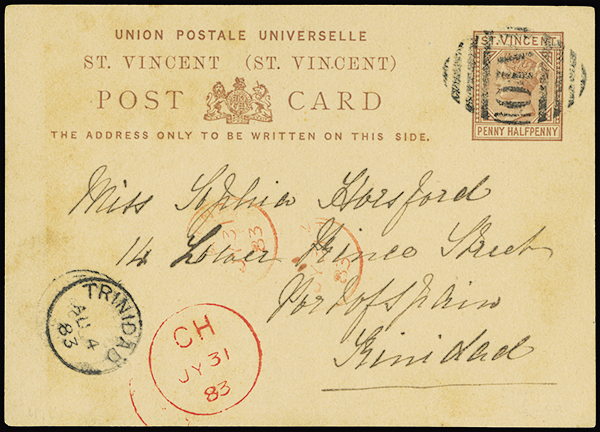 UNION POSTALE UNIVERSELLE
ST. VINCENT (ST. VINCENT)
POST CARD
THE ADDRESS ONLY TO BE WRITTEN ON THIS SIDE.
ST. VINCENT
PENNY HALFPENNY
Miss Sophia Horsford
14 Lower Prince Street
Port of Spain
Trinidad
TRINIDAD
AU 4
83
CH
JY 31
83
83
JY 31
83